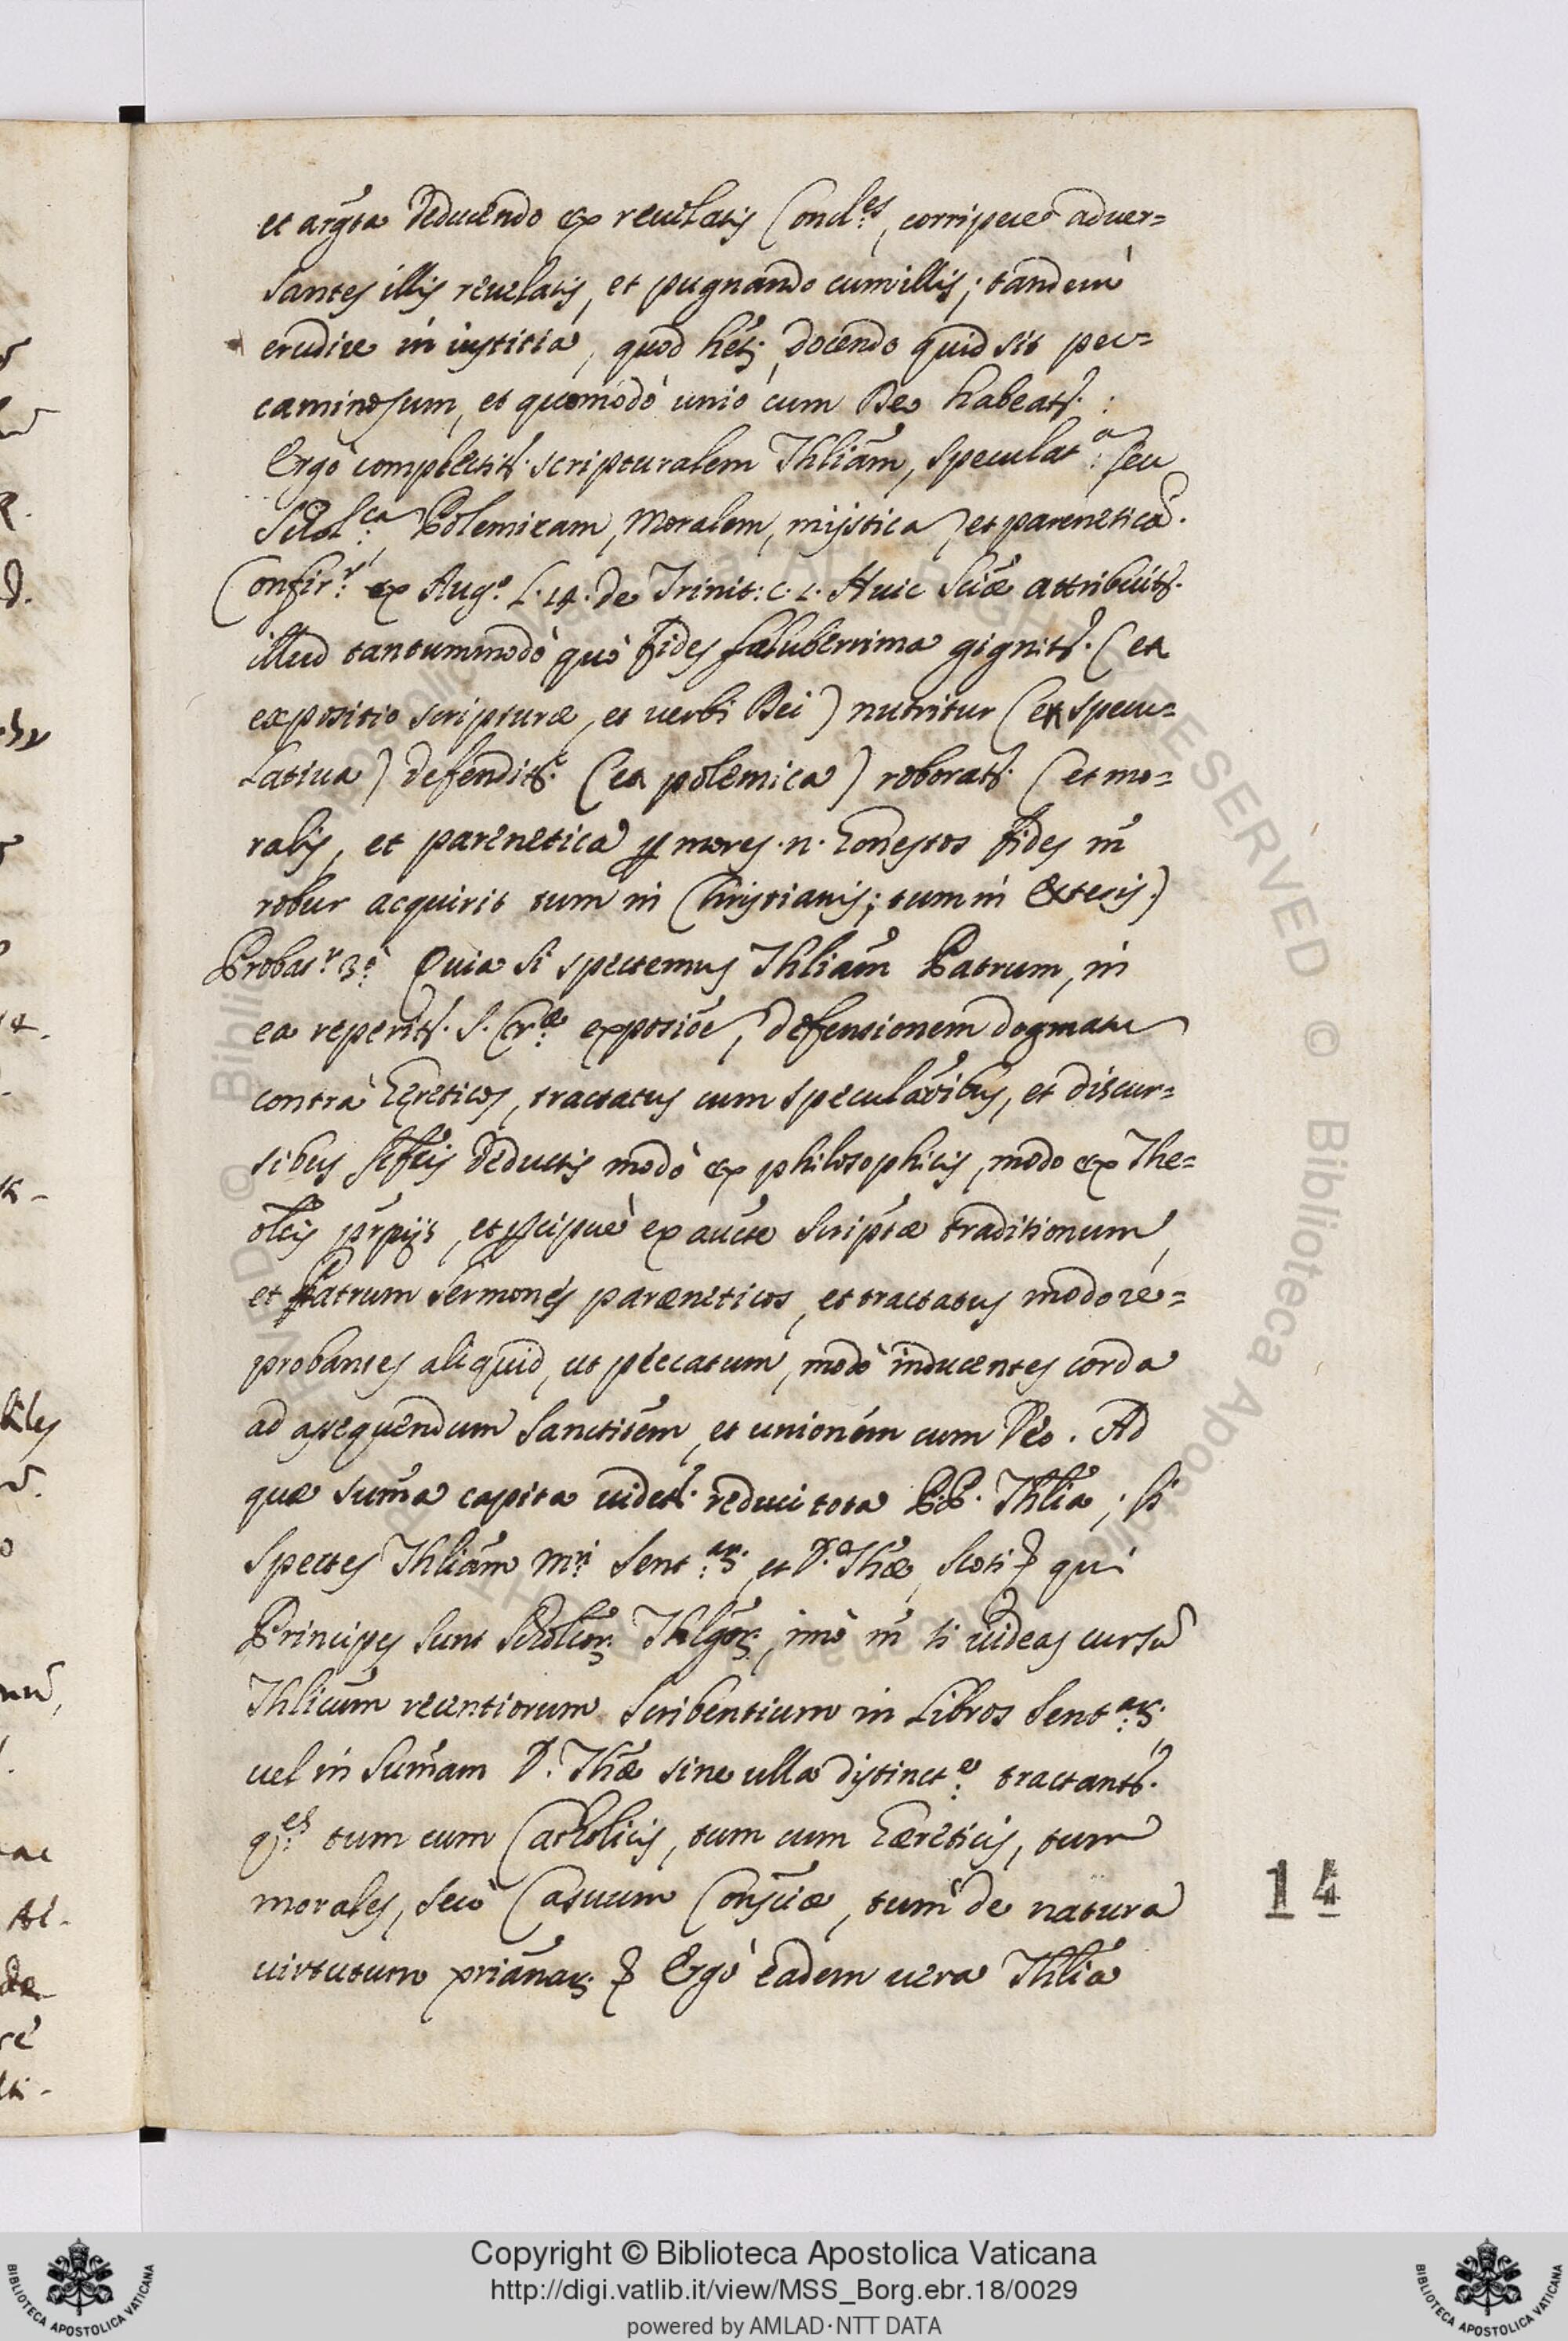 et argta deducendo ex reuelatis Concl:es, corripere aduer=
santes illis reuelatis, et pugnando cum illis; tandem
erudire in iustitia, quod het; docendo quid sit pec=
caminosum, et quomodò unio cum Deo habeatr. :
Ergo complectitr. scripturalem Thliam, speculat:a seu
Schol:ca, Polemicam, Moralem, mijstica, et pareneticã.
Confir:r ex Aug.o L. 14. de Trinit: c. 1. Huic Sciæ attribuitr.
illud tantummodò quò fides saluberrima gignitr. (ex
expositio scripturæ, et uerbi Dei) nutritur (ex specu=
latiua) defenditr. (ex polemica) roboratr. (et mo=
ralis, et parenetica per mores .n. honestos fides m̃
robur acquirit tum in Christianis; tum in Exteris.)
Probat:r 3:o Quia si spectemus Thliam Patrum, in
ea reperitr. S. Scr:æ exposioẽ, defensionem dogmatũ
contrà hereticos, tractatus cum speculaoibus, et discur=
sibus sifcis deductis modò ex philosophicis, modo ex The=
olcis prpijs, et præcipuè ex aucte Scriptæ traditionum,
et Patrum sermones paræneticos, et tractatus modo re=
probantes aliquid, ut peccatum, modò inducentes corda
ad assequendum Sanctitem, et unionem cum Deo. Ad
quæ summa capita uidetr. reduci tota PP. Thlia; si
spectes Thliam M:ri Sent:ar. et D. Thæ, Scoti & qui
Principes sunt Scholcor. Thlgor., imò m̃ si uideas cursũ
Thlicum recentiorum scribentium in Libros Sent:ar.
uel in Summam D. Thæ sine ulla distinct:e tractantr.
q:es tum cum Catholicis, tum cum hæreticis, tum
morales, seù Casuum Consciæ, tum de natura
uirtutum xpianar. & Ergò eadem uera Thlia
14
Copyright © Biblioteca Apostolica Vaticana
http://digi.vatlib.it/view/MSS_Borg.ebr.18/0029
powered by AMLAD·NTT DATA